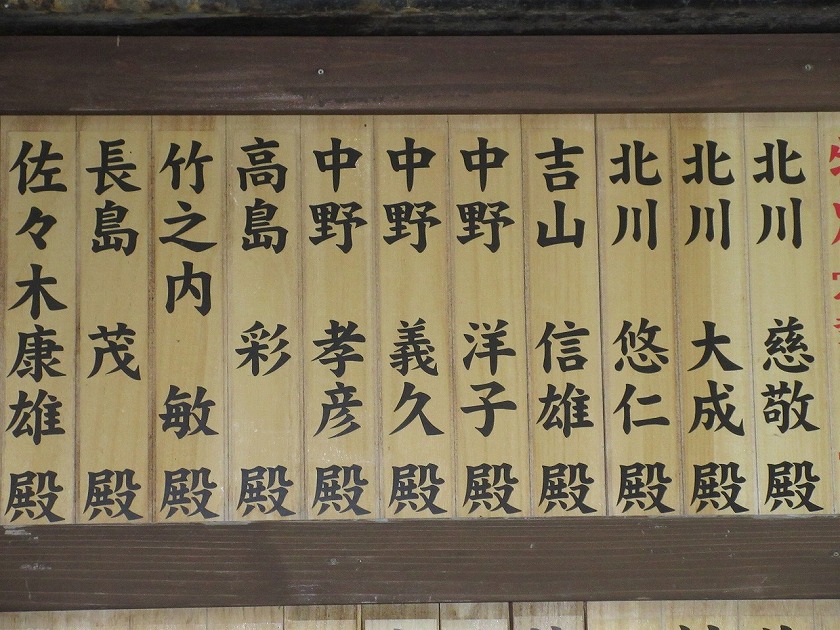 北川 慈敬 殿
北川 大成 殿
北川 悠仁 殿
吉山 信雄 殿
中野 洋子 殿
中野 義久 殿
中野 孝彦 殿
高島 彩 殿
竹之内 敏 殿
長島 茂 殿
佐々木康雄 殿